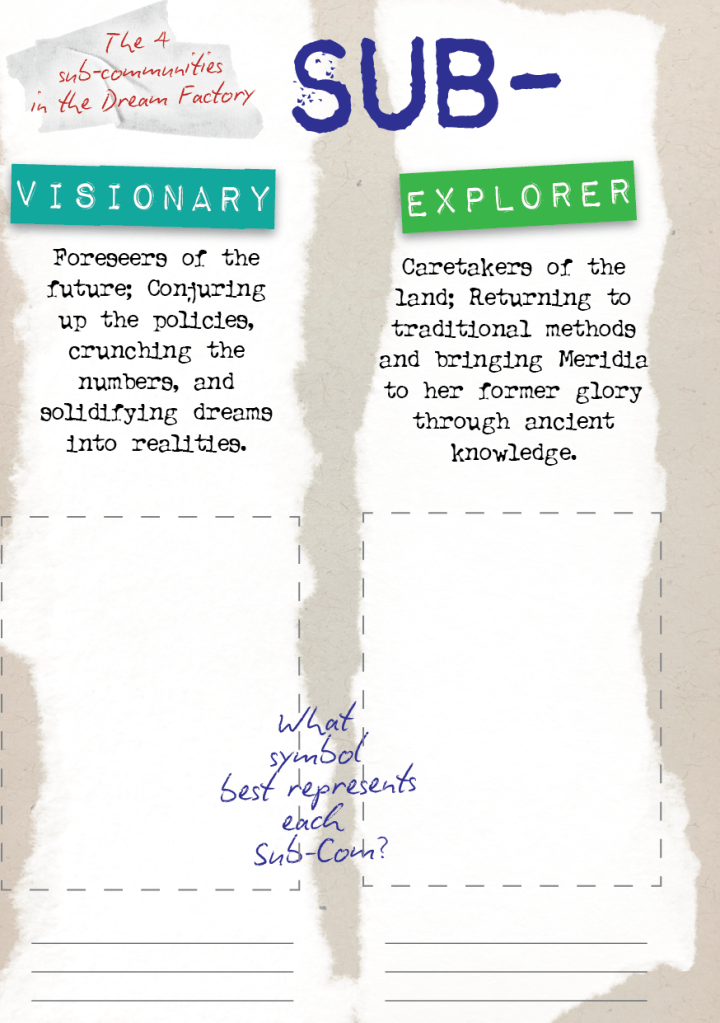 The 4
sub-communities
in the Dream Factory
SUB-
VISIONARY
Foreseers of the
future; Conjuring
up the policies,
crunching the
numbers, and
solidifying dreams
into realities.
EXPLORER
Caretakers of the
land; Returning to
traditional methods
and bringing Meridia
to her former glory
through ancient
knowledge.
What
symbol
best represents
each
Sub-Com?